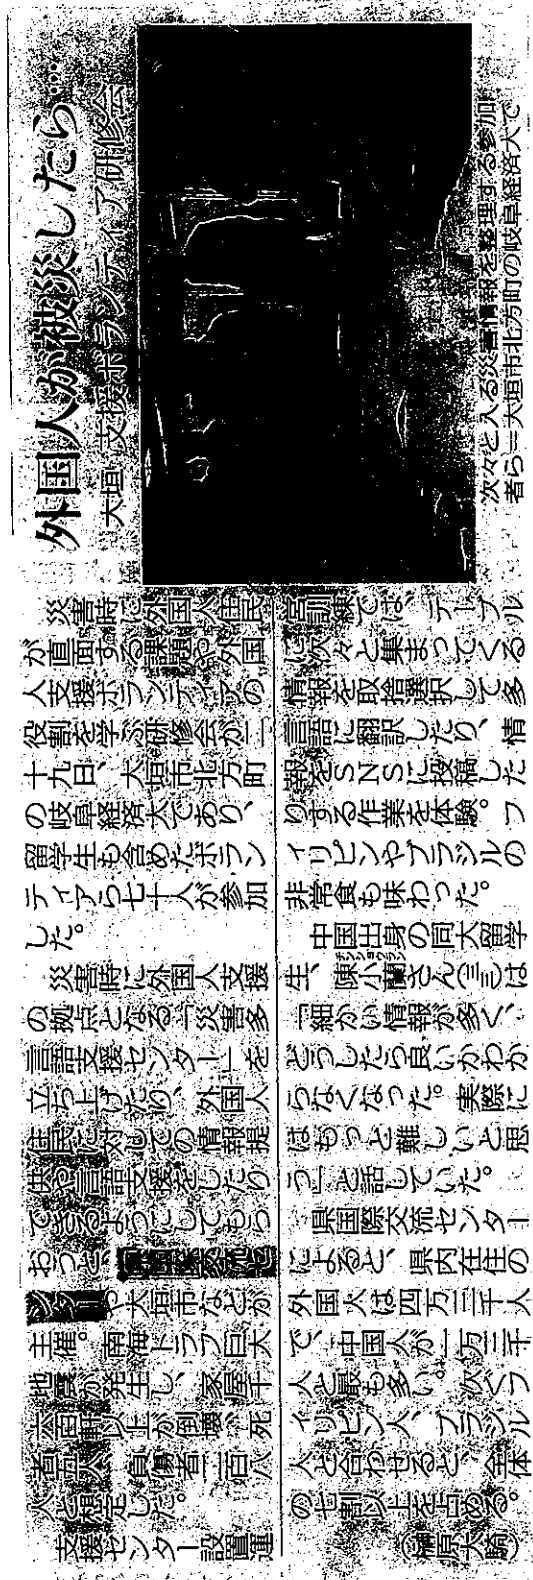 外国人が被災したら…
大垣 支援ボランティア研修会
次々と入る災害情報を整理する参加
者ら＝大垣市北方町の岐阜経済大で
災害時に外国人住民
が直面する課題や外国
人支援ボランティアの
役割を学ぶ研修会が二
十九日、大垣市北方町
の岐阜経済大であり、
留学生も含めたボラン
ティアら七十人が参加
した。
災害時に外国人支援
の拠点となる「災害多
言語支援センター」を
立ち上げたり、外国人
住民に対しての情報提
供や言語支援をしたり
できるようにしてもら
おうと、県国際交流セ
ンターや大垣市などが
主催。南海トラフ巨大
地震が発生し、家屋千
軒以上が倒壊、死
者 人、負傷者二百八
人と想定した。
支援センター設置運
営訓練では、テーブル
に次々と集まってくる
情報を取捨選択して多
言語に翻訳したり、情
報をSNSに投稿した
りする作業を体験。フ
ィリピンやブラジルの
非常食も味わった。
中国出身の同大留学
生、陳小蘭さんは
「細かい情報が多く、
どうしたら良いかわか
らなくなった。実際に
はもっと難しいと思
う」と話していた。
県国際交流センター
によると、県内在住の
外国人は四万三千人
で、中国人が一万三千
人と最も多い。次ぐフ
ィリピン人、ブラジル
人と合わせると、全体
の七割以上を占める。
（榊原大騎）